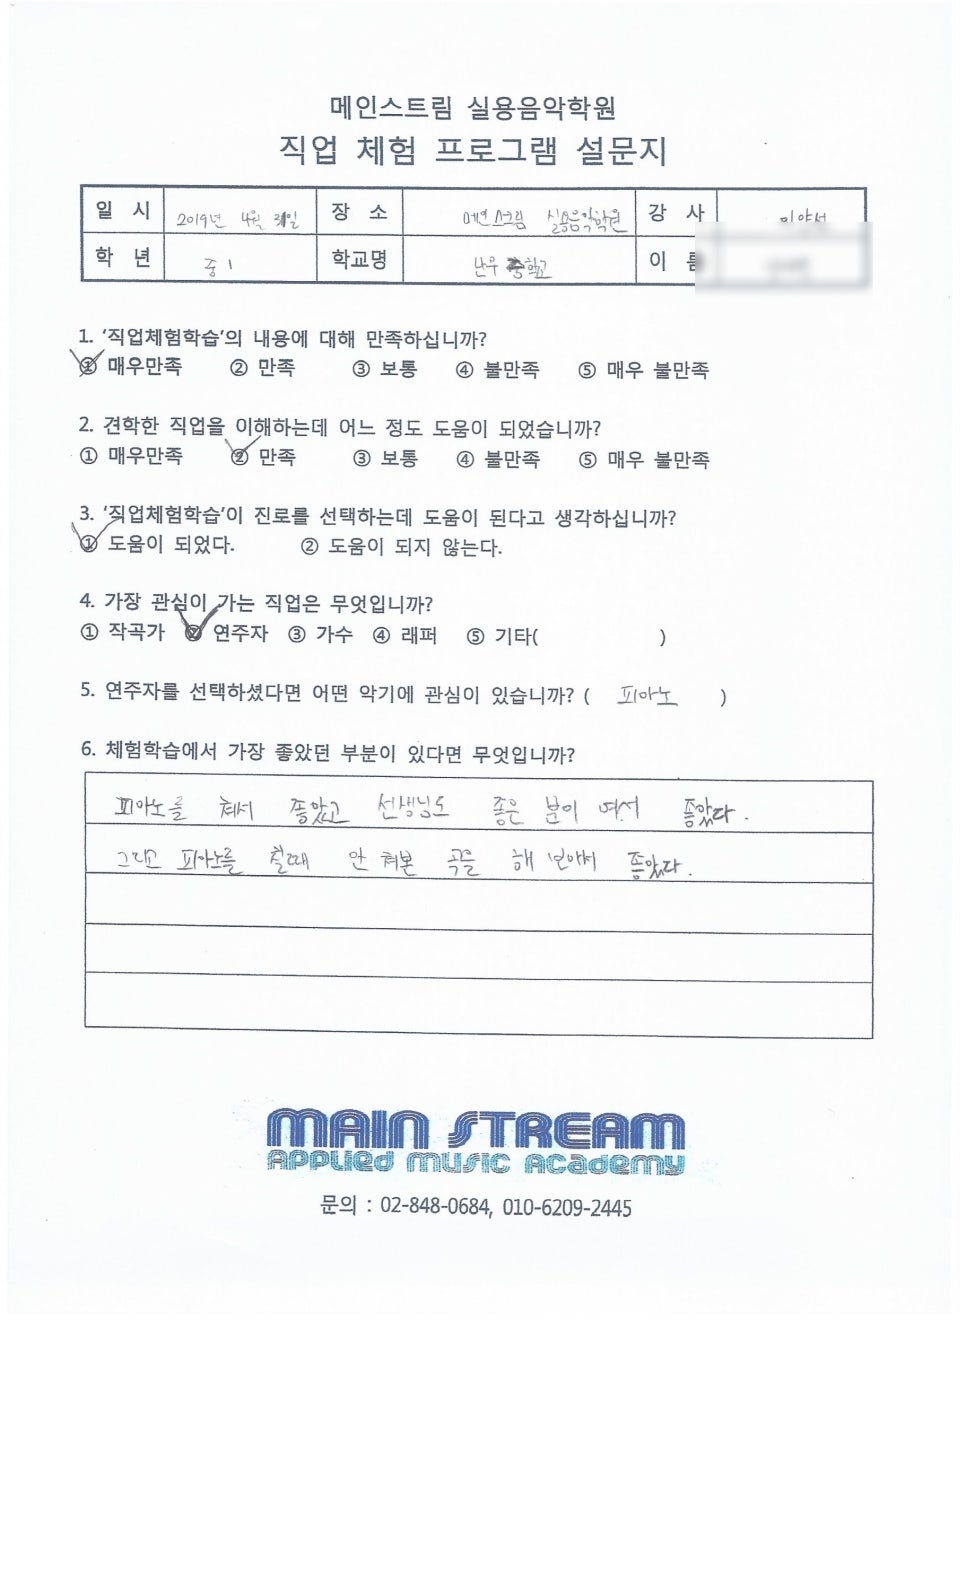 메인스트림 실용음악학원
직업 체험 프로그램 설문지
일 시 2019년 4월 일 장 소 메인스트림 실용음악학원 강 사
학 년 중 1 학교명 난우 중학교 이 름
1. '직업체험학습'의 내용에 대해 만족하십니까?
① 매우만족 ② 만족 ③ 보통 ④ 불만족 ⑤ 매우 불만족
2. 견학한 직업을 이해하는데 어느 정도 도움이 되었습니까?
① 매우만족 ② 만족 ③ 보통 ④ 불만족 ⑤ 매우 불만족
3. '직업체험학습'이 진로를 선택하는데 도움이 된다고 생각하십니까?
① 도움이 되었다. ② 도움이 되지 않는다.
4. 가장 관심이 가는 직업은 무엇입니까?
① 작곡가 ② 연주자 ③ 가수 ④ 래퍼 ⑤ 기타( )
5. 연주자를 선택하셨다면 어떤 악기에 관심이 있습니까? ( 피아노 )
6. 체험학습에서 가장 좋았던 부분이 있다면 무엇입니까?
피아노를 쳐서 좋았고 선생님도 좋은 분이 여서 좋았다.
그리고 피아노를 칠때 안 쳐본 곡을 해 보아서 좋았다.
MAIN STREAM
APPLIED MUSIC ACADEMY
문의 : 02-848-0684, 010-6209-2445